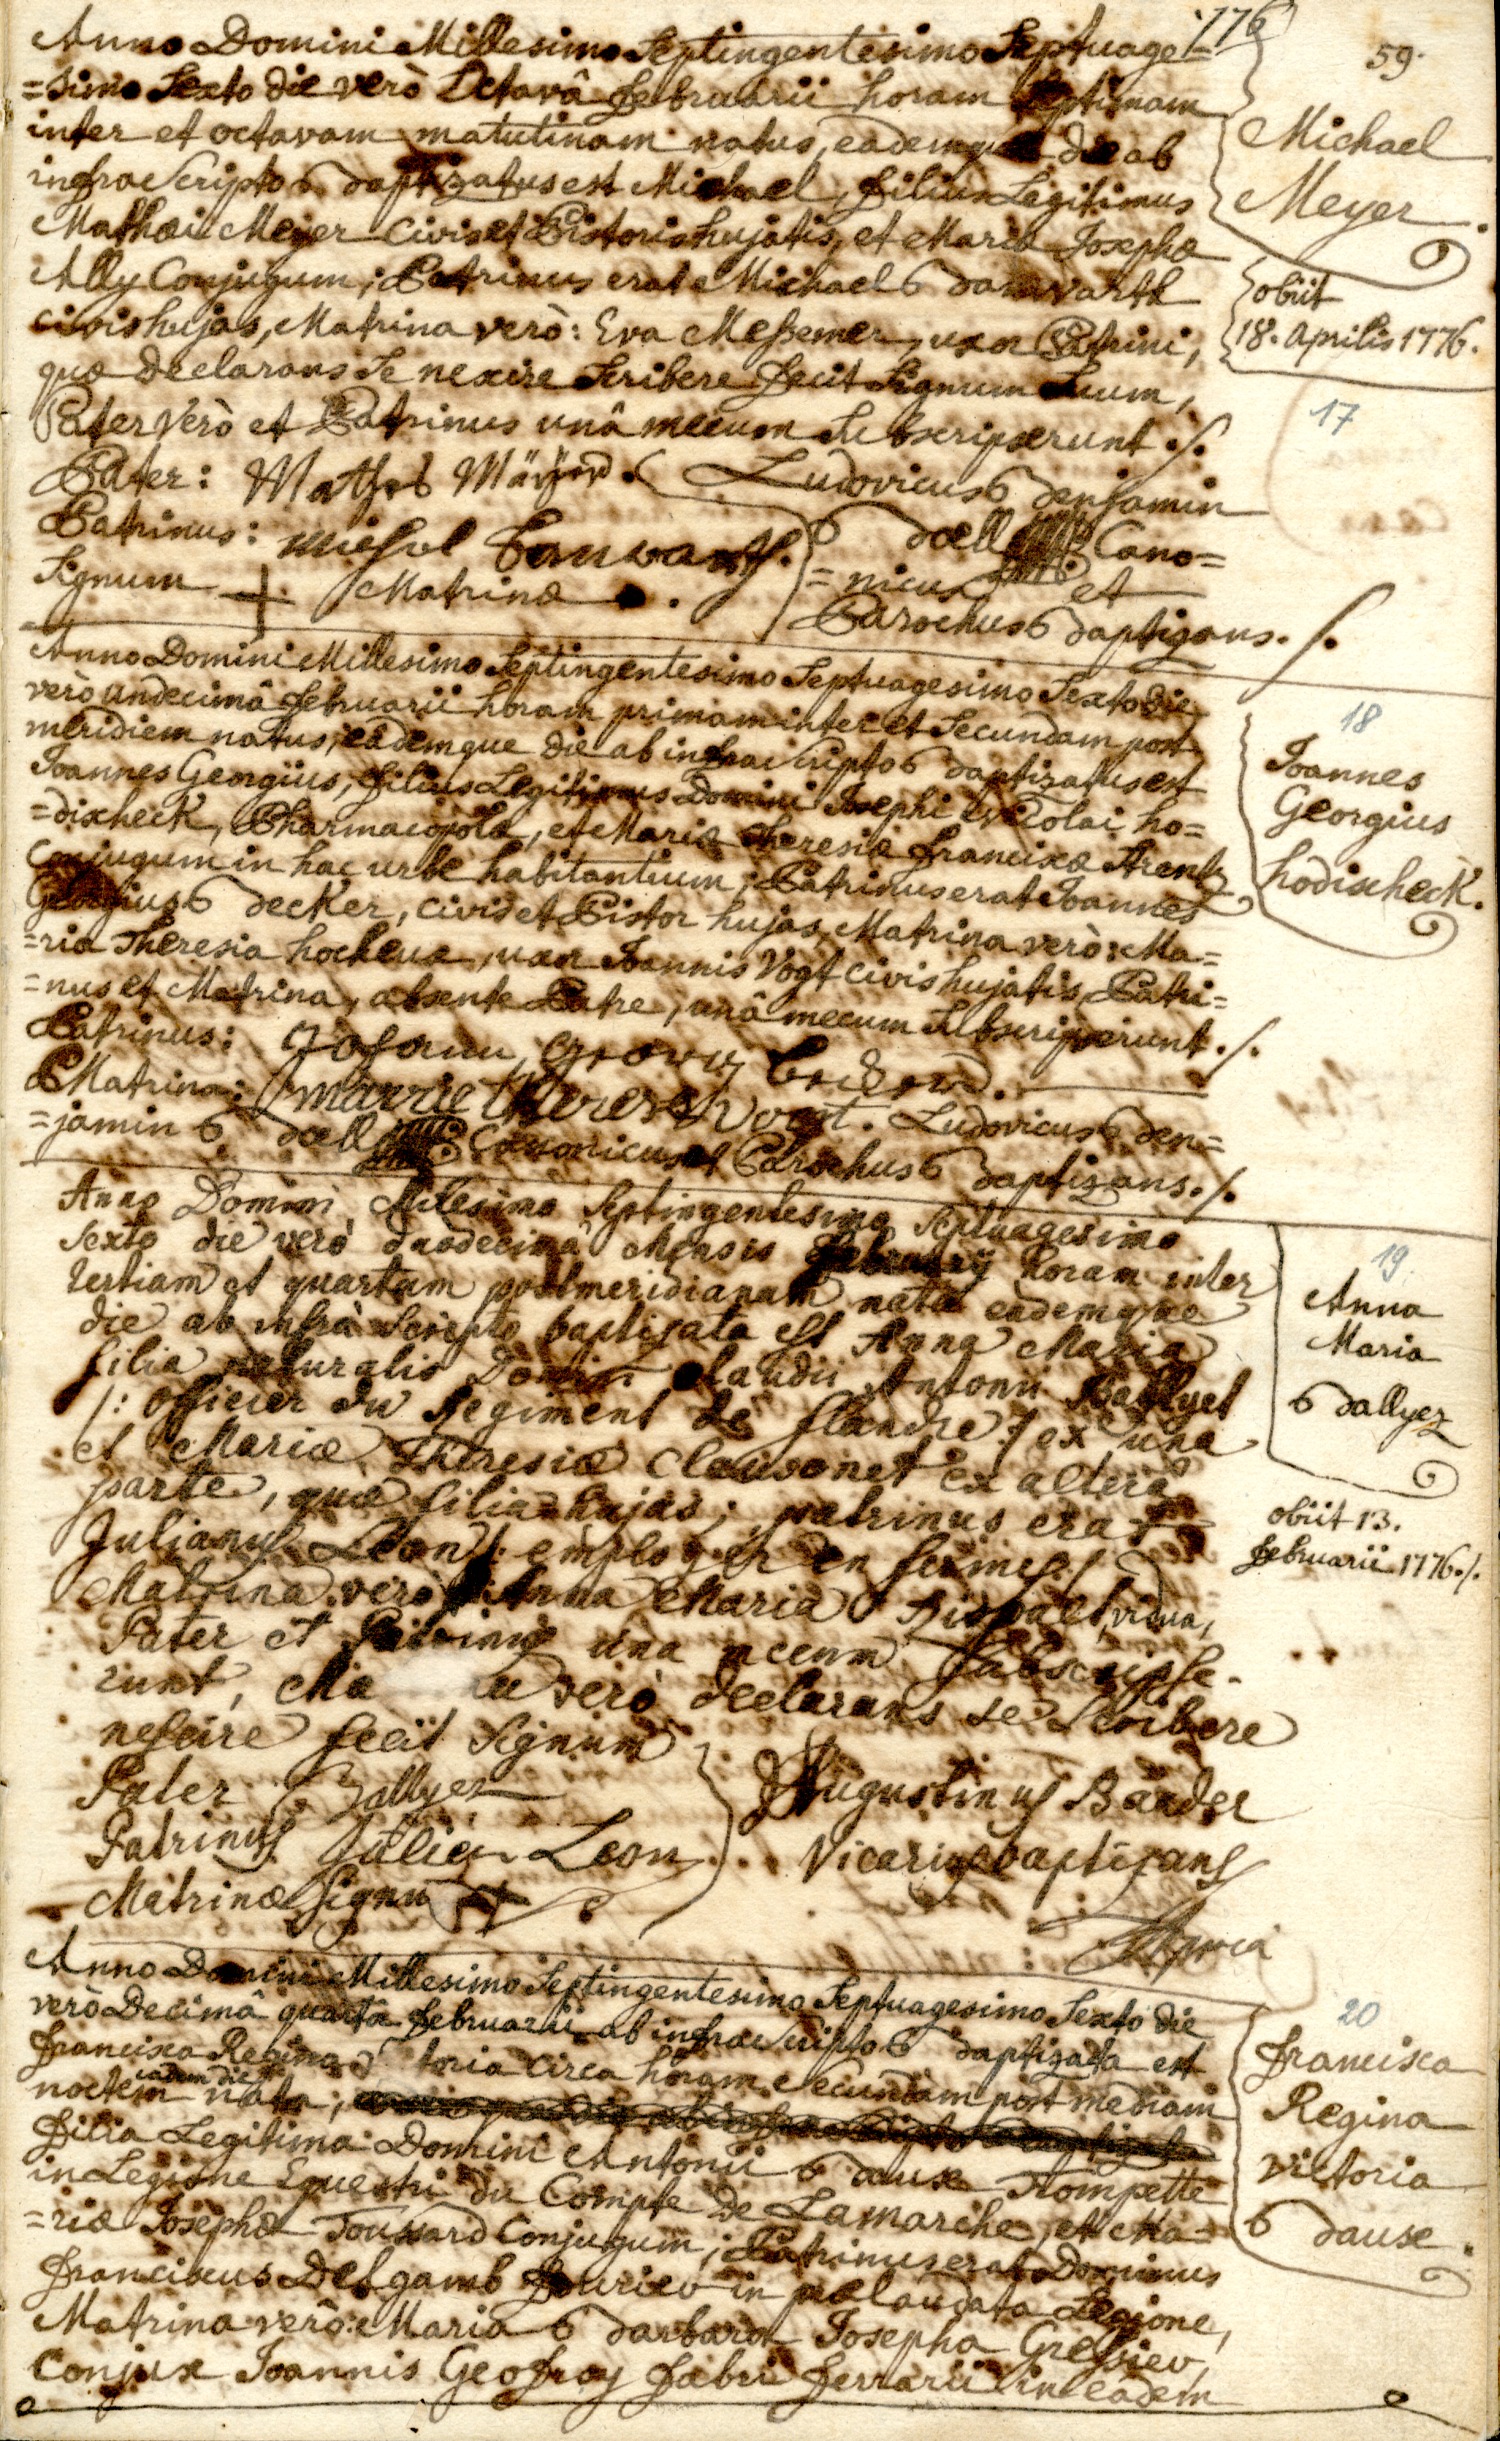 1776
59.
Anno Domini Millesimo Septingentesimo Septuage=
=simo Sexto die verò Octavâ Februarii horam Septimam
inter et octavam matutinam natus, eademque die ab
infrascripto Baptizatus est Michael, filius Legitimus
Mathæi Meyer Civis et Pistoris hujatis, et Mariæ Josephæ
Ally Conjugum; Patrinus erat Michael Bannwarth
civis hujas, Matrina verò: Eva Meßemer, uxor Patrini,
quæ declarans Se nescire Scribere fecit Signum Suum,
Pater verò et Patrinus unâ mecum Subscripserunt ./.
Pater: Mathis
Patrinus: Michel Banwarth.
Signum + Matrinæ .
Ludovicus Benjamin
Bœll Cano=
=nicus et
Parochus Baptizans. ./.
Michael
Meyer.
obiit
18. Aprilis 1776.
17
Anno Domini Millesimo Septingentesimo Septuagesimo Sexto die
verò undecimâ Februarii horam primam inter et Secundam post
meridiem natus, eâdemque die ab infrascripto Baptizatus est
Joannes Georgius, filius Legitimus Domini Josephi Nicolai ho=
=discheck, Pharmacopolæ, et Mariæ Theresiæ Franciscæ Arentz
conjugum in hac urbe habitantium; Patrinus erat Joannes
Georgius Becker, civis et Pistor hujas, Matrina verò: Ma=
=ria Theresia, uxor Joannis Vogt civis hujatis, Patri=
=nus et Matrina, absente Patre, unâ mecum Subscripserunt ./.
Patrinus: Johann Georg
Matrina: Marrie theress Vogt. Ludovicus Ben=
=jamin Bœll Canonicus et Parochus Baptizans. ./.
18
Joannes
Georgius
hodischeck.
Anno Domini Milesimo Septingentesimo Septuagesimo
Sexto die verò duodecimâ Mensis Februarÿ horam inter
tertiam et quartam postmeridianam nata eademque
die ab infrà Scripto baptizata est Anna Maria
filia naturalis Domini Claudii Antonii Ballyet
/: Officier du Regiment de flandre :/ ex unâ
et Mariæ Theresiæ Clausonet ex alterâ
parte, quæ filia hujas; patrinus erat
Julianus Leon /: employer en fermes :/
Matrina verò Anna Maria vidua,
Pater et Patrinus una mecum Subscripse-
runt, Ma verò declarans se Scribere
nescire fecit Signum
Pater Ballyez
Patrinus Julien Leon
Matrinæ Signu +
Augustinus Bander
Vicarius baptizans
19
Anna
Maria
Ballyez
obiit 13.
Februarii 1776. ./.
Anno Domini Millesimo Septingentesimo Septuagesimo Sexto die
verò Decimâ quartâ Februarii ab infrascripto Baptizata est
Francisca Regina toria circa horam Secundam post mediam
eadem die
noctem nata;
filia Legitima Domini Antonii Bause Trompette
in Legione Equestri du Compte de Lamarche, et Ma=
=riæ Josephæ Toussard Conjugum; Patrinus erat Dominus
Franciscus Delgamb Fourier in prælaudata Legione,
Matrina verò: Maria Barbara Josepha Greßiev,
Conjux Joannis Geofroy Fabri Ferrarii in eadem
20
Francisca
Regina
Victoria
Bause.